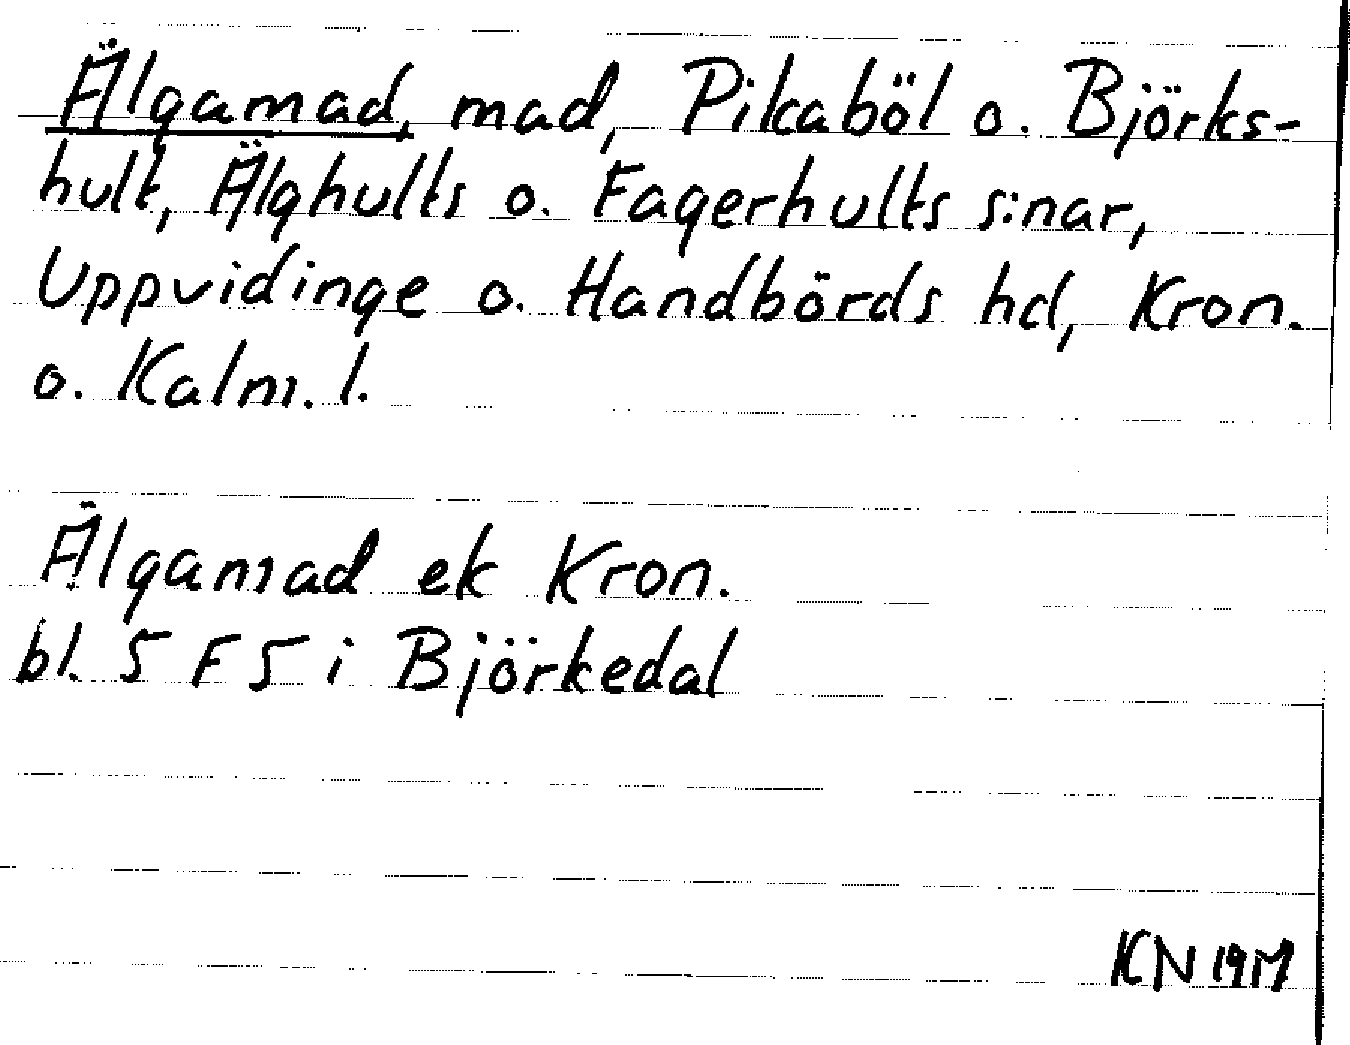 Älgamad, mad, Pikaböl o. Björks-
hult, Älghults o. Fagerhults s:nar,
Uppvidinge o. Handbörds hd, Kron.
o. Kalm. l.
Älgamad ek Kron.
bl. 5 F 5 i Björkedal
KN